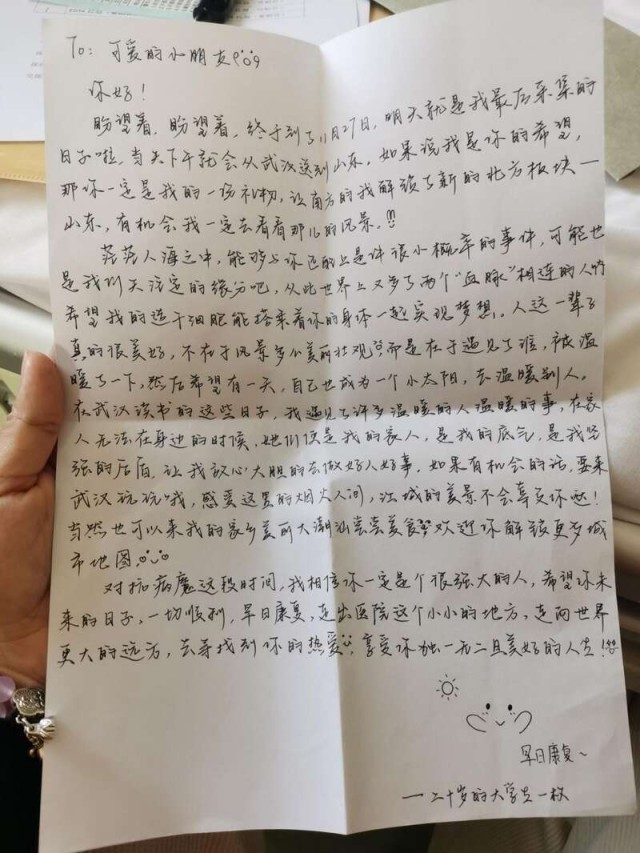 To: 可爱的小朋友
你好!
盼望着,盼望着,终于到了11月27日,明天就是我最后采集的
日子啦,当天下午就会从武汉送到山东,如果说我是你的希望,
那你一定是我的一份礼物,让南方的我解锁了新的北方板块—
山东,有机会我一定去看看那儿的风景。!!!
茫茫人海之中,能够与你匹配上是件很小概率的事件,可能也
是我们天注定的缘分吧,从此世界上又多了两个“血脉”相连的人
希望我的造干细胞能搭乘着你的身体一起实现梦想。人这一辈子
真的很美好,不在于风景多么美丽壮观,而是在于遇见了谁,被温
暖了一下,然后希望有一天,自己也成为一个小太阳,去温暖别人。
在武汉读书的这些日子,我遇见了许多温暖的人温暖的事,在家
人无法在身边的时候,她们便是我的家人,是我的底气,是我坚
强的后盾,让我放心大胆的去做好人好事,如果有机会的话,要来
武汉玩玩哦,感受这里的烟火人间,江城的美景不会辜负你哒!
当然也可以来我的家乡美丽大潮汕尝尝美食 欢迎你解锁更多城
市地图。
对抗病魔这段时间,我相信你一定是个很强大的人,希望你未
来的日子,一切顺利,早日康复,走出医院这个小小的地方,走向世界
更大的远方,去寻找到你的热爱,享受你独一无二且美好的人生!
早日康复~
一二十岁的大学生一枚